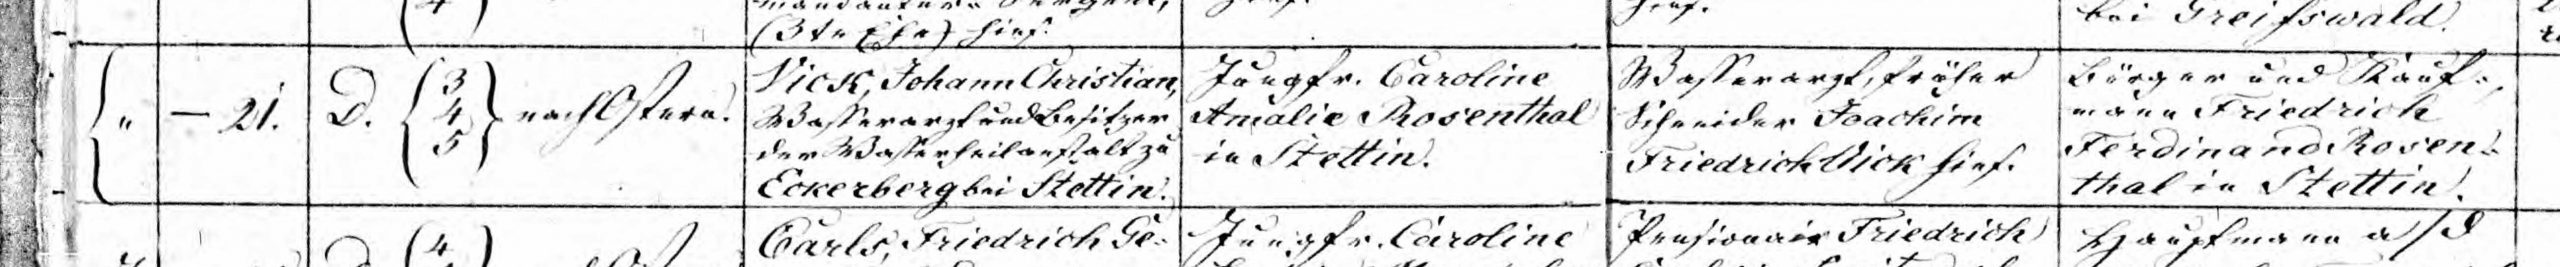 (3te Ehe) hies.
bei Greifswald.
" — 21. D. 3 4 5 nach Ostern.
Vick, Johann Christian,
Wasserarzt und Besitzer
der Wasserheilanstalt zu
Eckerberg bei Stettin.
Jungfr. Caroline
Amalie Rosenthal
in Stettin.
Wasserarzt, früher
Schneider Joachim
Friedrich Vick hies.
Bürger und Kauf-
mann Friedrich
Ferdinand Rosen-
thal in Stettin.
D. 4
Carls, Friedrich Ge-
Jungfr. Caroline
Pensionair Friedrich
Hauptmann a/d